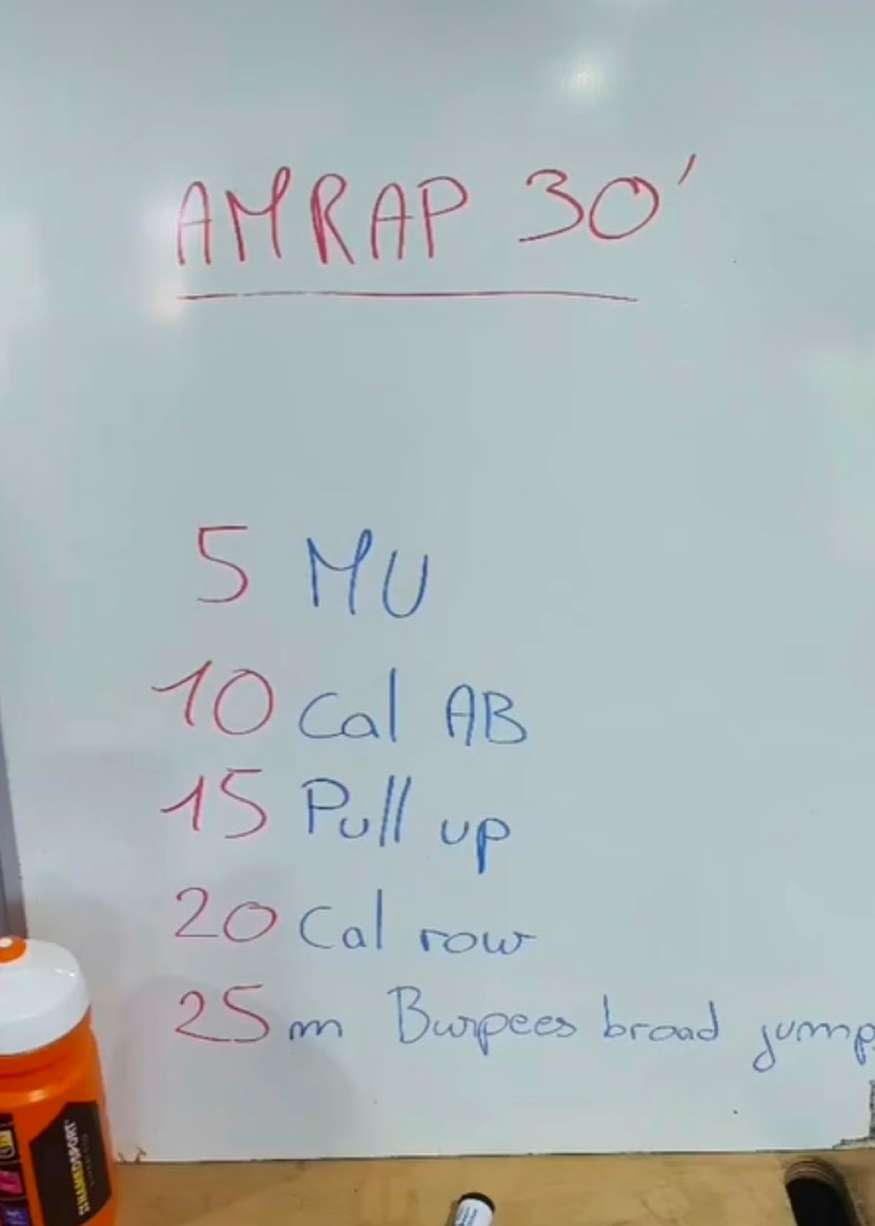 AMRAP 30'
5 MU
10 Cal AB
15 Pull up
20 Cal row
25 m Burpees broad jump